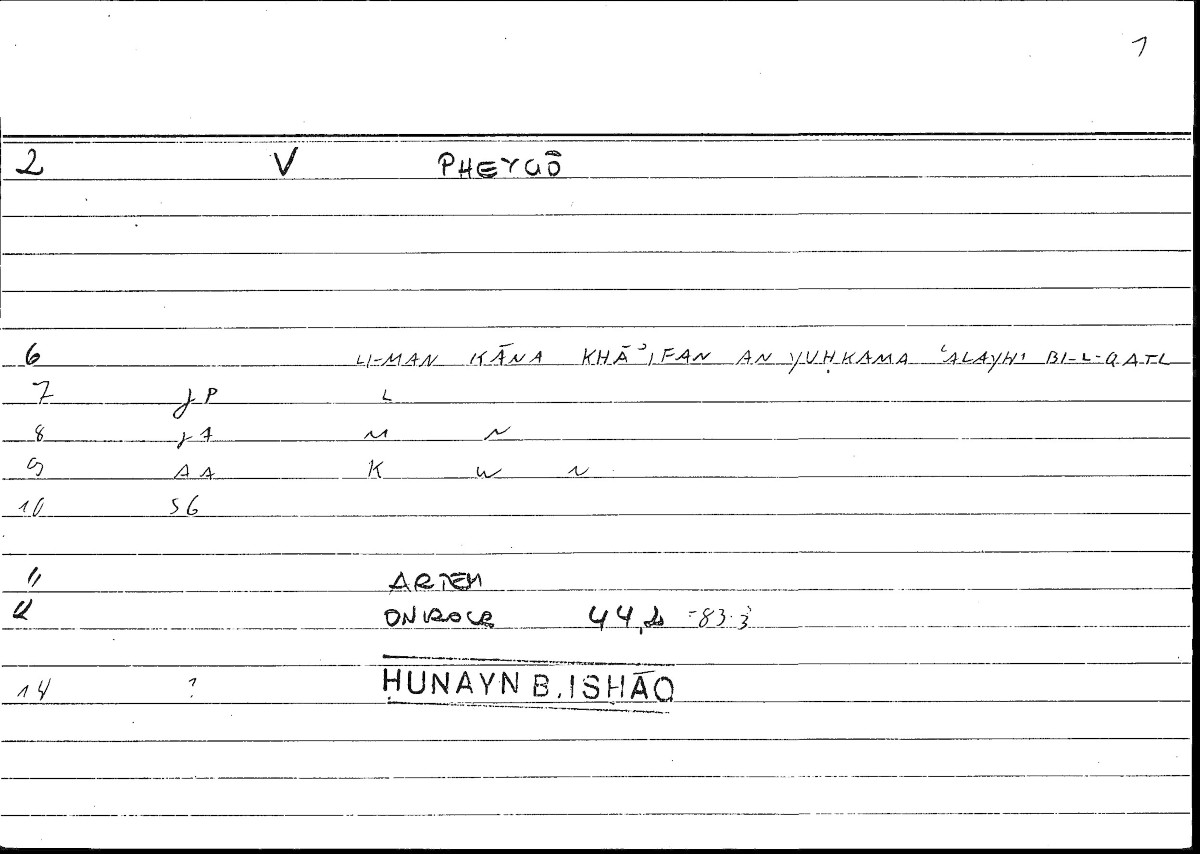 1
2 V PHEYGŌ
6 LI-MAN KĀNA KHĀʾIFAN AN YUḤKAMA ʿALAYHI BI-L-QATL
7 JP L
8 JA M N
9 AA K W N
10 SG
11 ARTEM
12 ONIROCR 44,20 =83.3
14 ? ḤUNAYN B. ISHĀQ